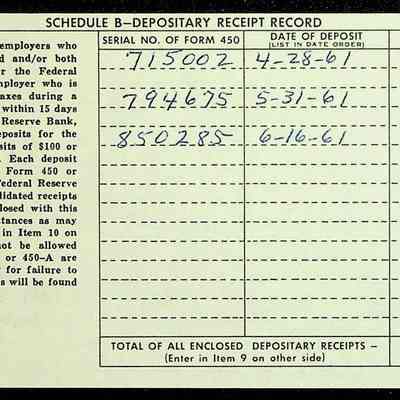 SCHEDULE B—DEPOSITARY RECEIPT RECORD
employers who
d and/or both
r the Federal
mployer who is
axes during a
within 15 days
Reserve Bank,
eposits for the
sits of $100 or
. Each deposit
Form 450 or
Federal Reserve
lidated receipts
losed with this
tances as may
in Item 10 on
not be allowed
or 450-A are
y for failure to
s will be found
SERIAL NO. OF FORM 450
DATE OF DEPOSIT
(LIST IN DATE ORDER)
715002 4-28-61
794675 5-31-61
850285 6-16-61
TOTAL OF ALL ENCLOSED DEPOSITARY RECEIPTS –
(Enter in Item 9 on other side)